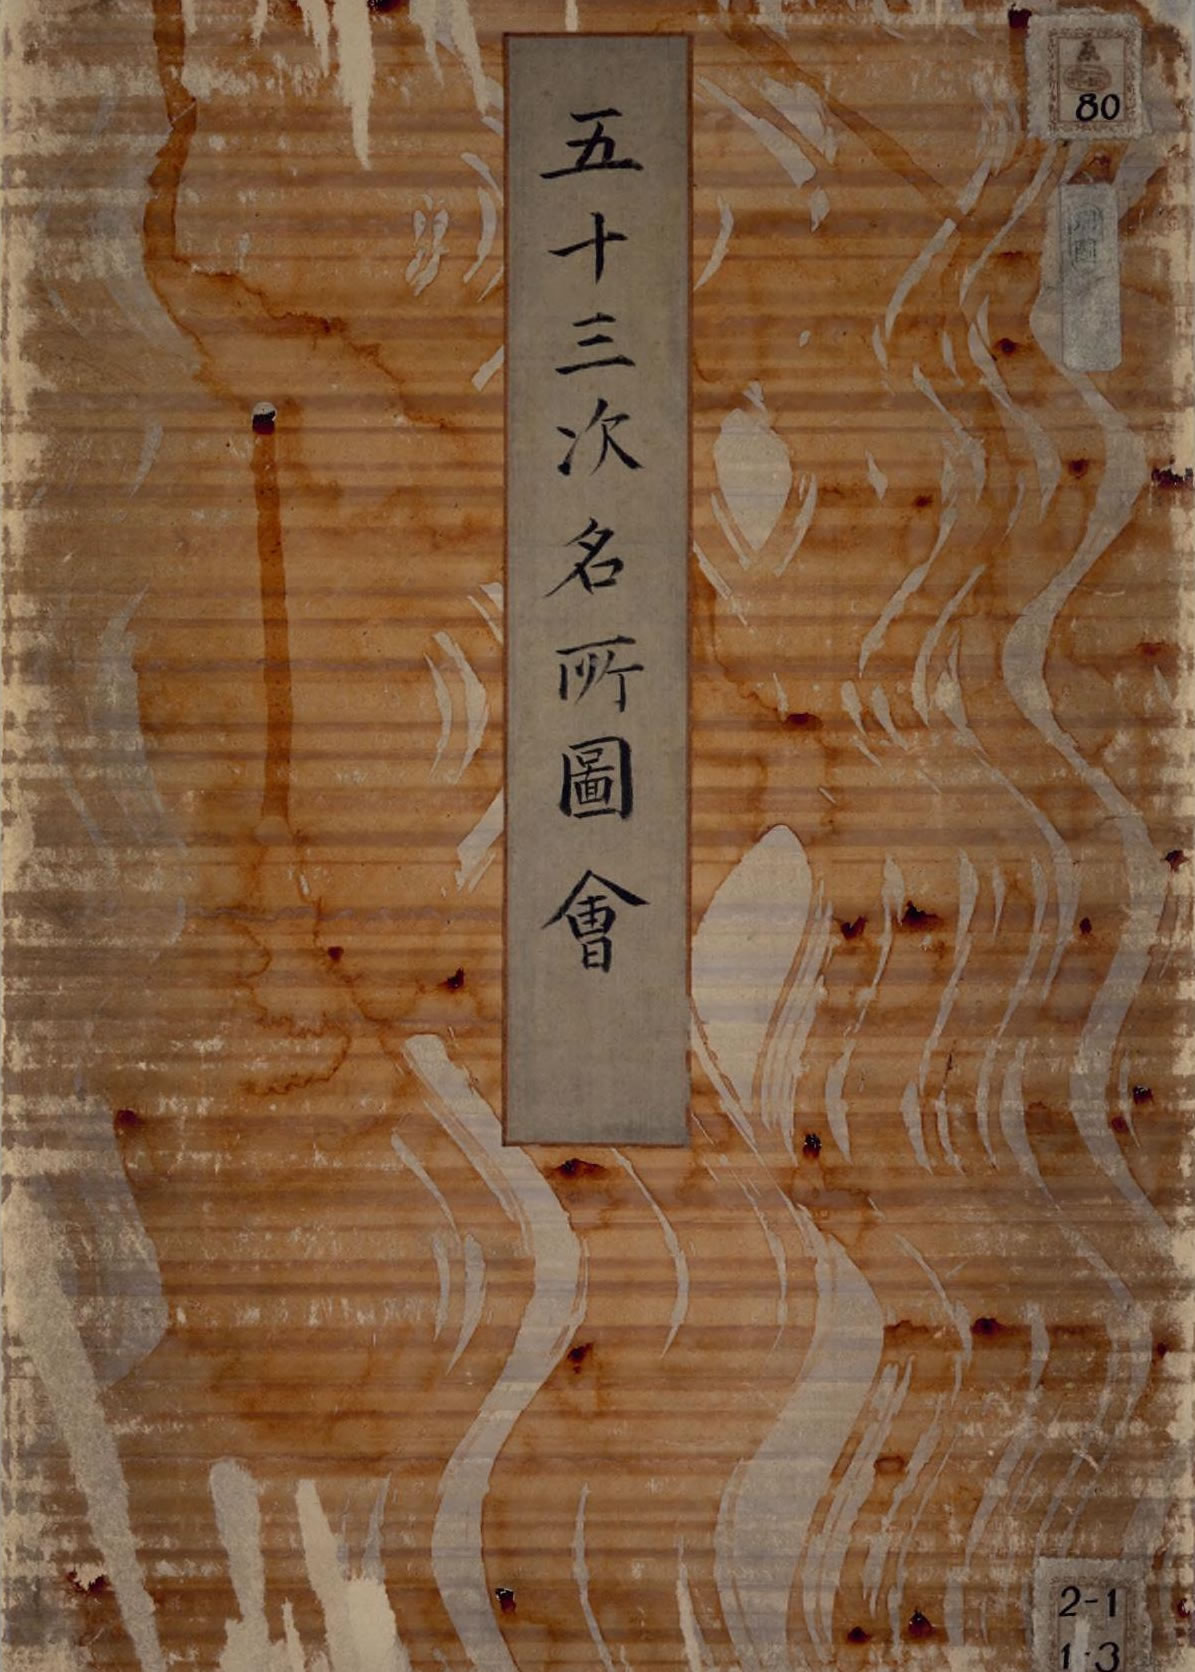 五十三次名所圖會
80
2-1
1:3